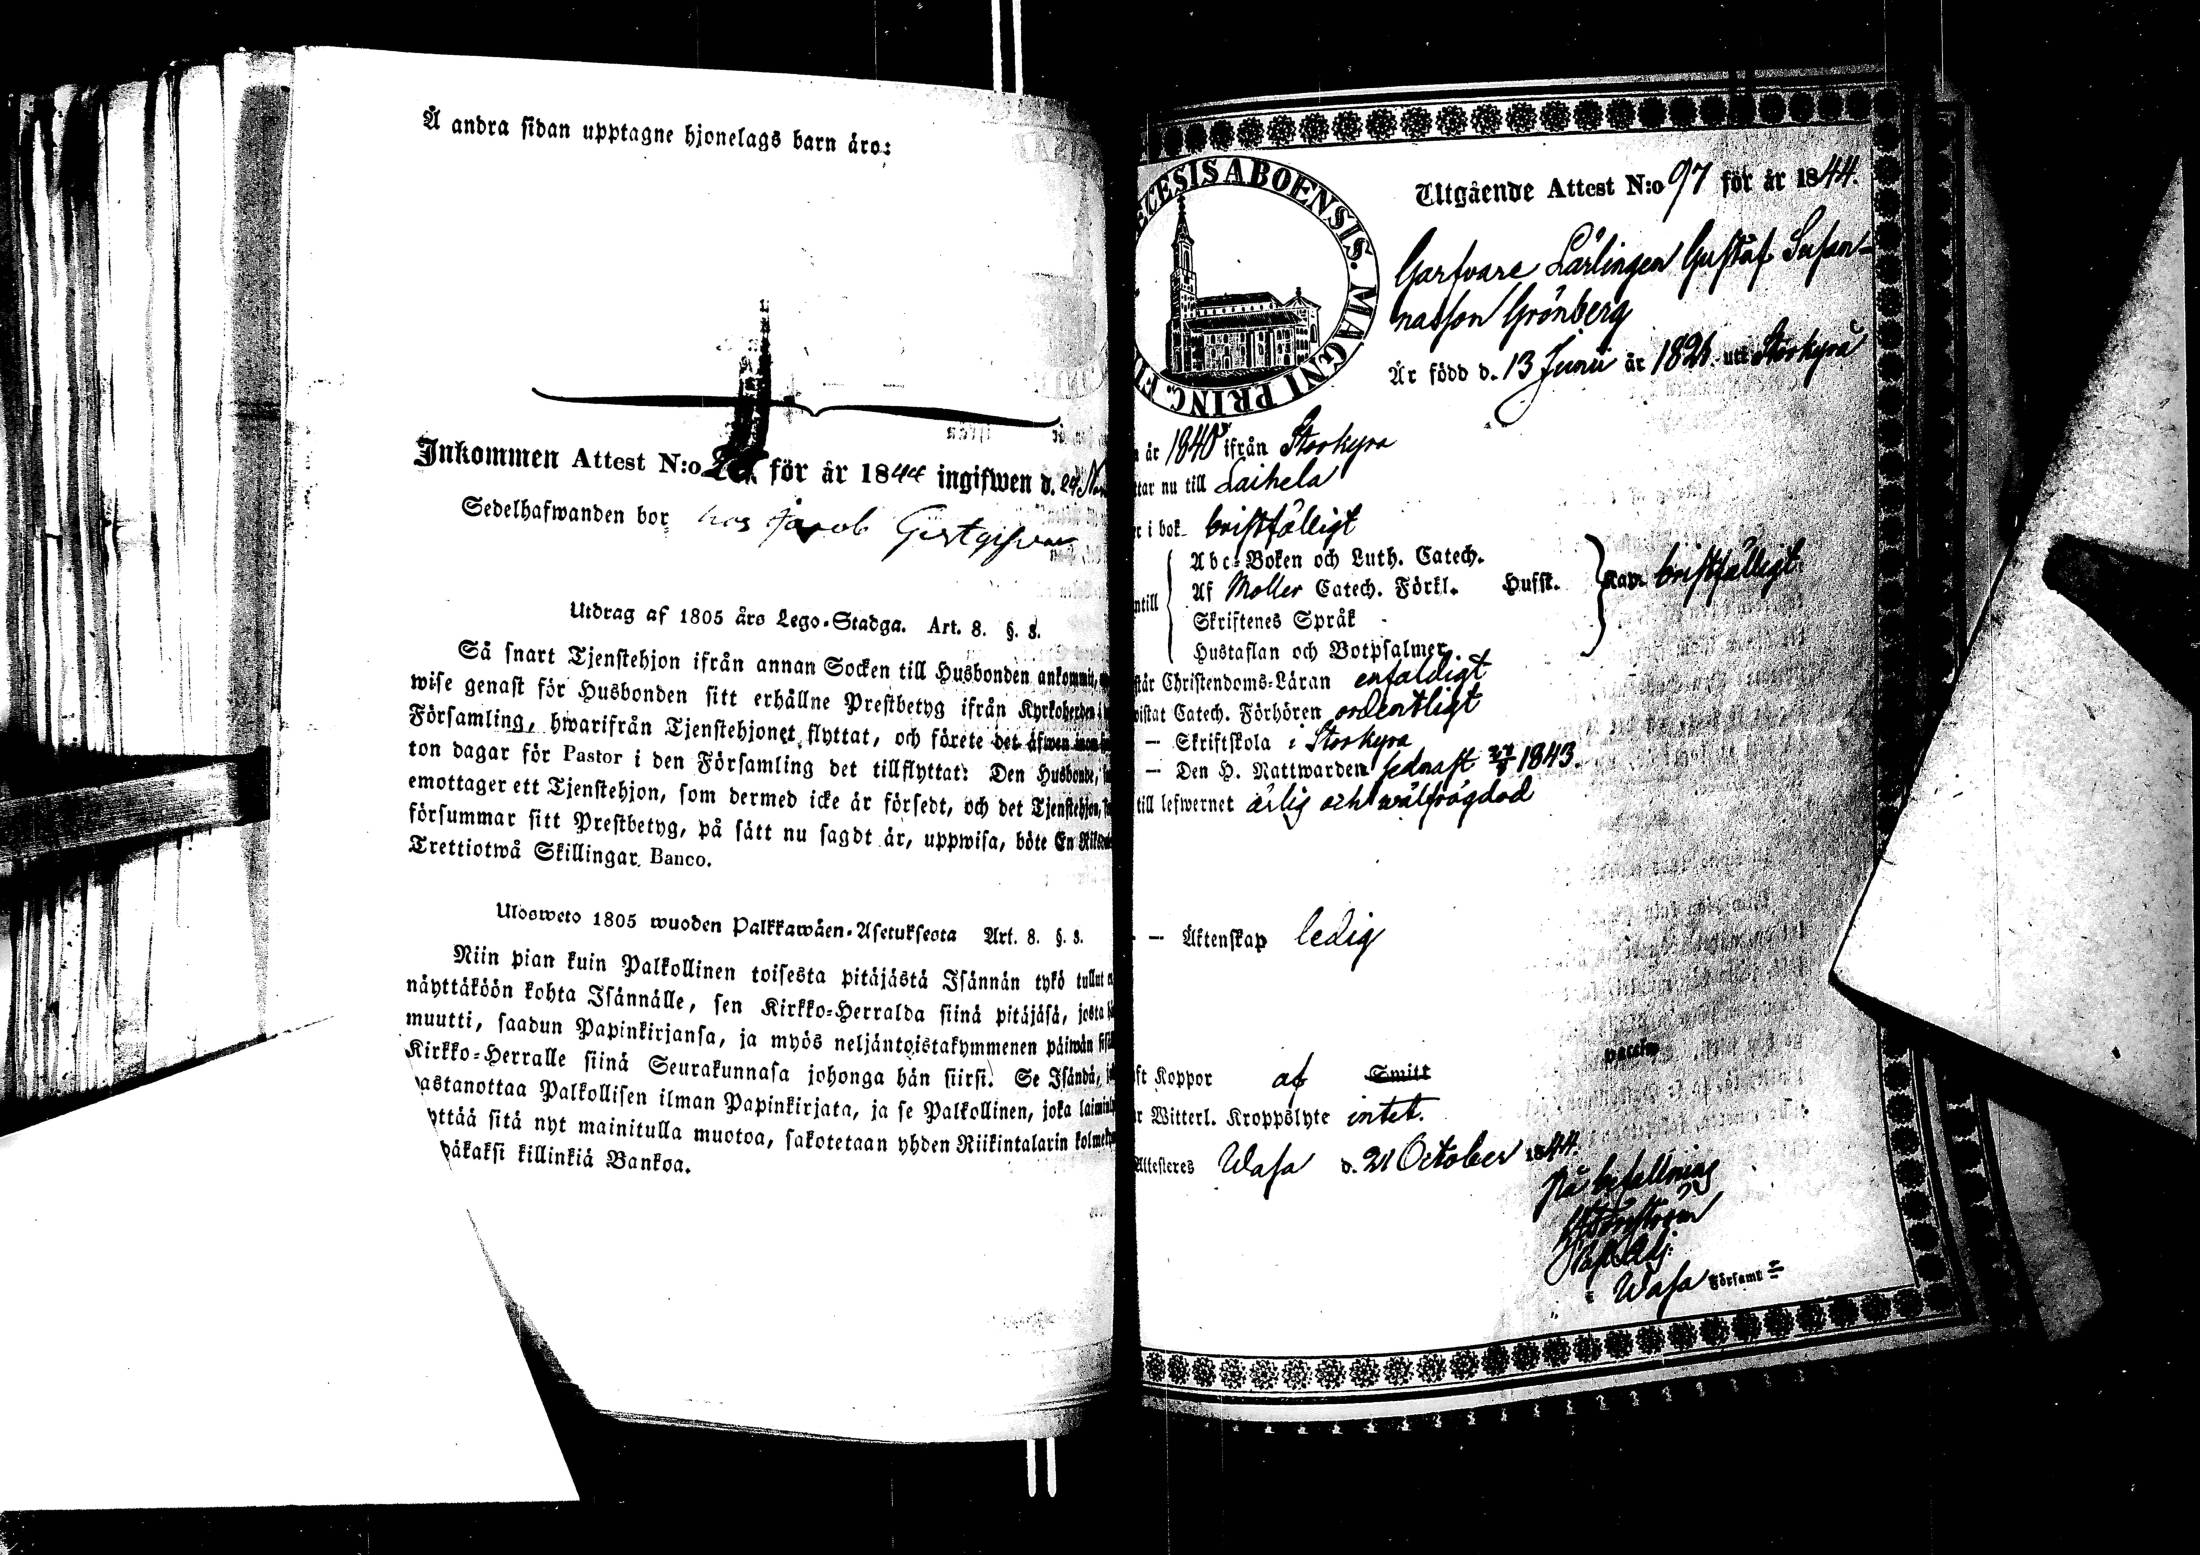 Å andra sidan upptagne hjonelags barn äro:
Inkommen Attest N:o för år 1844 ingifwen d. 24
Sedelhafwanden bor hos Jacob
Utdrag af 1805 års Lego-Stadga. Art. 8. §. 3.
Så snart Tjenstehjon ifrån annan Socken till Husbonden ankommit,
wise genast för Husbonden sitt erhållne Prestbetyg ifrån Kyrkoherden i
Församling, hwarifrån Tjenstehjonet flyttat, och förete det äfwen inom
ton dagar för Pastor i den Församling det tillflyttat: Den Husbonde,
emottager ett Tjenstehjon, som dermed icke är försedt, och det Tjenstehjon,
försummar sitt Prestbetyg, på sätt nu sagdt är, uppwisa, böte En
Trettiotwå Skillingar Banco.
Ulosweto 1805 wuoden Palkkawäen-Asetuksesta Art. 8. §. 3.
Niin pian kuin Palkollinen toisesta pitäjästä Isännän tykö tullut
näyttäköön kohta Isännälle, sen Kirkko-Herralda siinä pitäjäsä, josta
muutti, saadun Papinkirjansa, ja myös neljäntoistakymmenen päiwän
Kirkko-Herralle siinä Seurakunnasa johonga hän siirsi. Se Isändä,
astanottaa Palkollisen ilman Papinkirjata, ja se Palkollinen, joka
yttää sitä nyt mainitulla muotoa, sakotetaan yhden Riikintalarin
päkaksi killinkiä Bankoa.
ECESIS ABOENSIS. MAGNI PRINC. F
Utgående Attest N:o 97 för år 1844.
Garfvare Lärlingen Gustaf Susan-
nasson Grönberg
Är född d. 13 Junii år 1821. uti Storkyro
år 1840 ifrån Storkyro
tar nu till Laihela
r i bok bristfälligt
Abc-Boken och Luth. Catech.
Af Möller Catech. Förkl. Hufst.
ntill
Skriftenes Språk
Hustaflan och Botpsalmer.
bristfälligt
står Christendoms-Läran enfaldigt
wistat Catech. Förhören ordentligt
— Skriftskola i Storkyro
— Den H. Nattwarden sednast 1843.
till lefwernet ärlig och wälfrägdad
— — Äktenskap ledig
ft Koppor af Smitt
r Witterl. Kroppslyte intet.
Attesteres Wasa d. 21 October 1844.
På befallning
Past. Adj.
i Wasa Församl